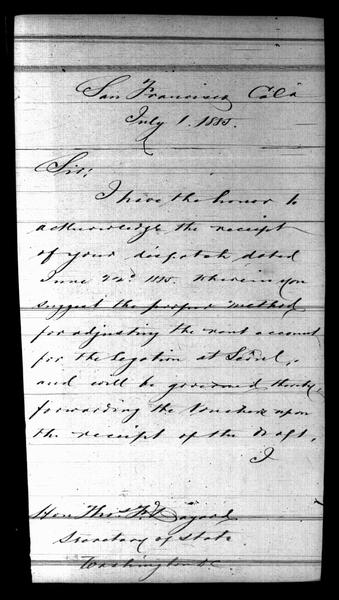 San Francisco Cala
July 1. 1885.
Sir:
I have the honor to
acknowledge the receipt
of your dispatch dated
June 22d 1885. wherein you
suggest the proper method
for adjusting the rent account
for the Legation at Seoul,
and will be governed thereby
forwarding the vouchers upon
the receipt of the Draft.
I
Hon. Thos. F. Bayard
Secretary of State
Washington DC